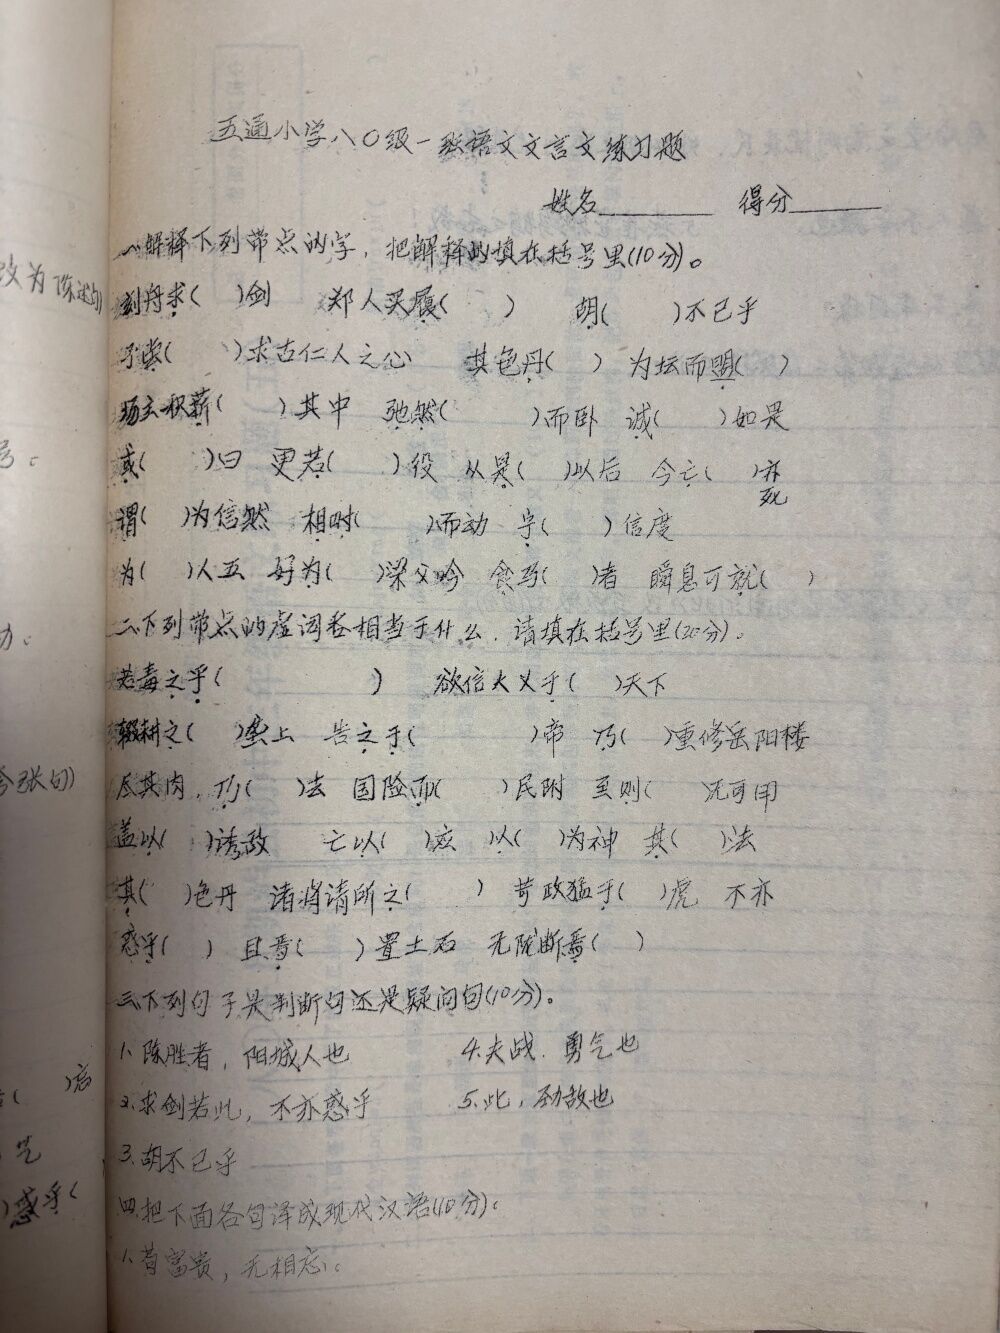 五通小学八〇级一班语文文言文练习题
姓名______ 得分______
一、解释下列带点的字，把解释的填在括号里(10分)。
刻舟求(  )剑  郑人买履(  )  胡(  )不已乎
予尝(  )求古仁人之心  其色丹(  )  为坛而盟(  )
场主积薪(  )其中  弛然(  )而卧  诚(  )如是
或(  )曰  更若(  )役  从是(  )以后  今亡(  )亦
死
谓(  )为信然  相时(  )而动  宁(  )信度
为(  )人五  好为(  )梁父吟  食马(  )者  瞬息可就(  )
二、下列带点的虚词各相当于什么，请填在括号里(20分)。
若毒之乎(  )  欲信大义于(  )天下
辍耕之(  )垄上  告之于(  )帝  乃(  )重修岳阳楼
尽其肉，乃(  )去  国险而(  )民附  至则(  )无可用
盖以(  )诱敌  亡以(  )应  以(  )为神  其(  )法
其(  )色丹  诸将请所之(  )  苛政猛于(  )虎  不亦
惑乎(  )  且焉(  )置土石  无陇断焉(  )
三、下列句子是判断句还是疑问句(10分)。
1. 陈胜者，阳城人也  4. 夫战，勇气也
2. 求剑若此，不亦惑乎  5. 此，劲敌也
3. 胡不已乎
四、把下面各句译成现代汉语(10分)：
1. 苟富贵，无相忘。
改为陈述句)
号。
动。
夸张句)
)惑乎(